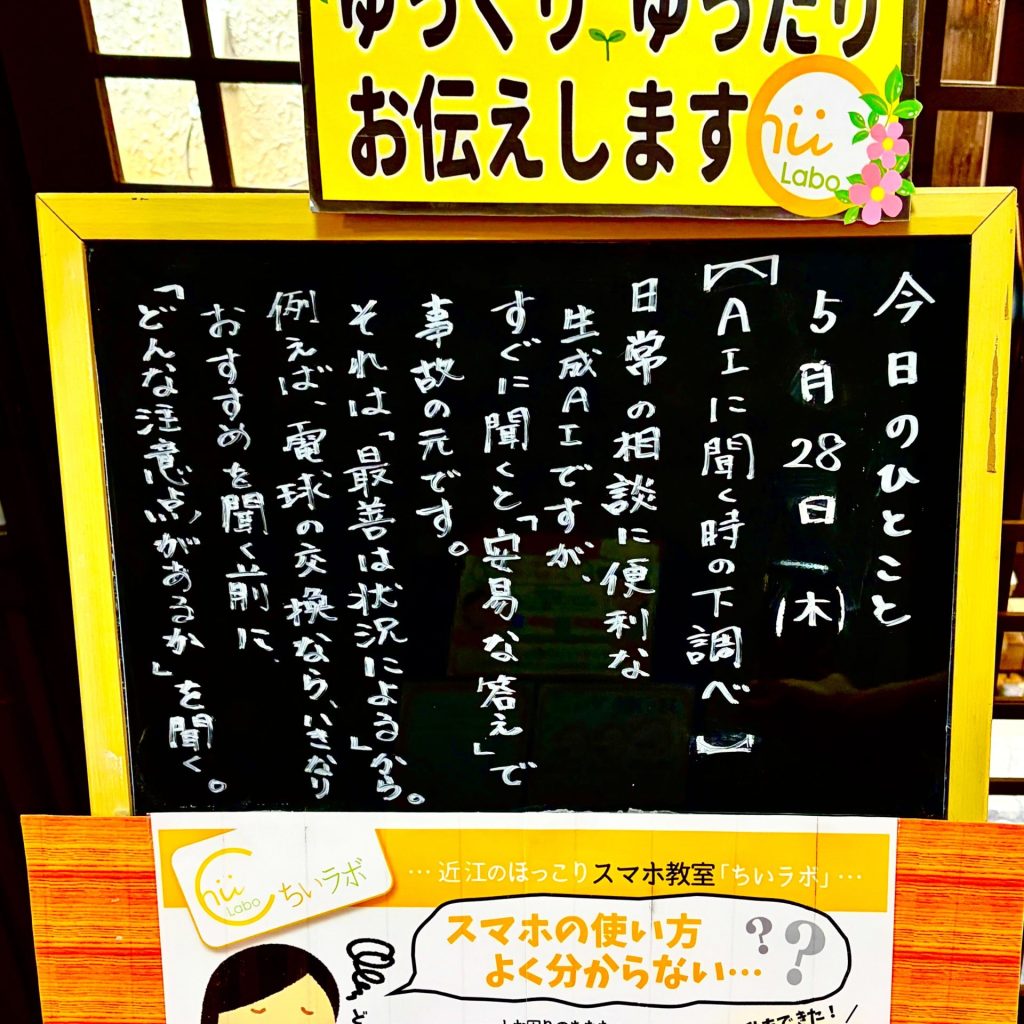 ゆっくり ゆったり
お伝えします
Chii
Labo
今日のひとこと
5月28日(木)
【AIに聞く時の下調べ】
日常の相談に便利な
生成AIですが、
すぐに聞くと「安易な答え」で
事故の元です。
それは「最善は状況による」から。
例えば、電球の交換なら、いきなり
おすすめを聞く前に、
「どんな注意点があるか」を聞く。
Chii
Labo
ちいラボ
…近江のほっこりスマホ教室「ちいラボ」…
スマホの使い方
よく分からない…
??